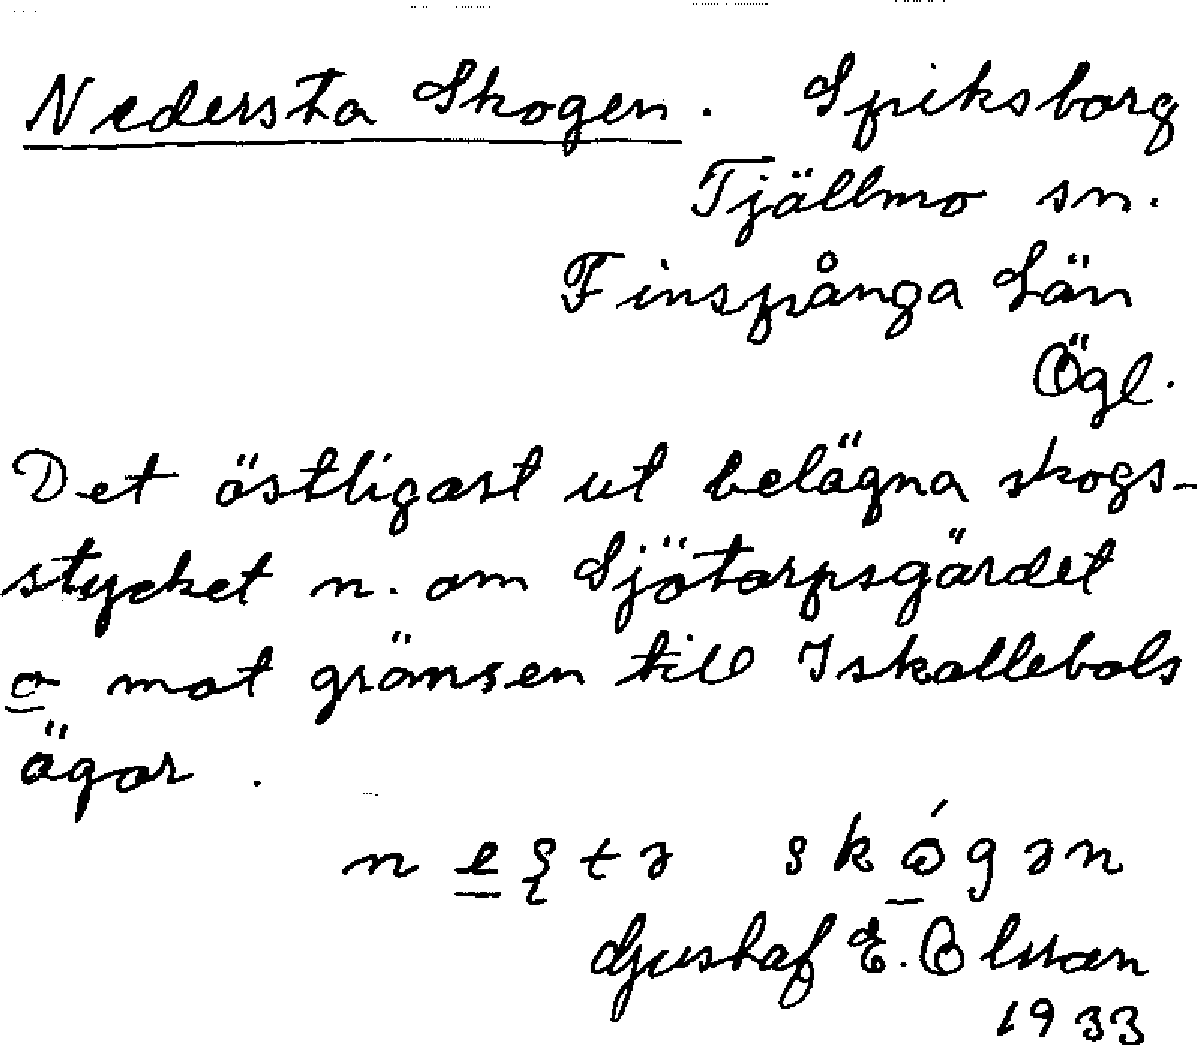 Nedersta Skogen. Spiksborg
Tjällmo sn.
Finspånga Län
Ögl.
Det östligast ut belägna skogs-
stycket n. om Sjötorpsgärdet
o mot gränsen till Iskallebols
ägor.
skógən
Gustaf E. Olsson
1933